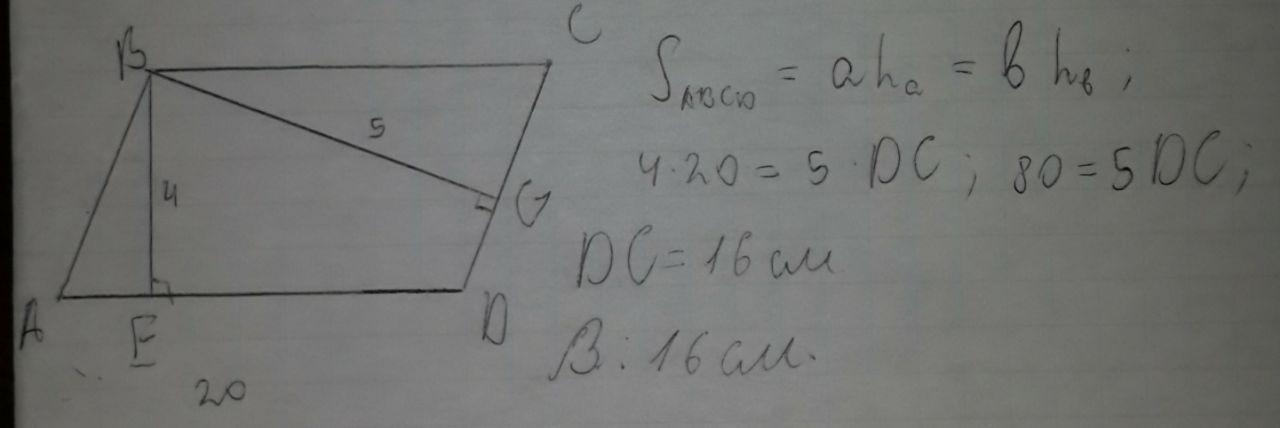 B
C
5
4
G
A
E
D
20
S_ABCD = a h_a = b h_b ;
4·20 = 5·DC ; 80 = 5DC ;
DC = 16 см
В: 16 см.